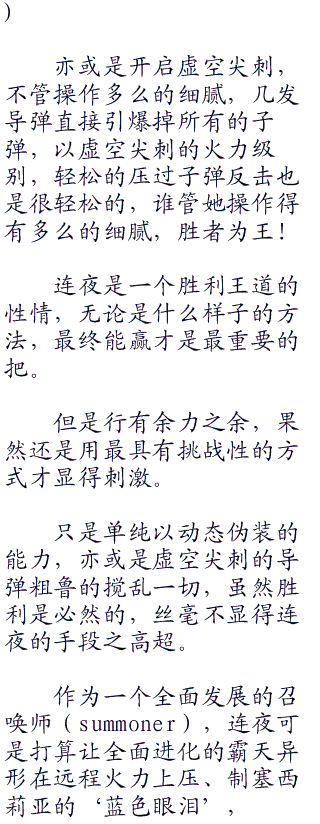 )
亦或是开启虚空尖刺，
不管操作多么的细腻，几发
导弹直接引爆掉所有的子
弹，以虚空尖刺的火力级
别，轻松的压过子弹反击也
是很轻松的，谁管她操作得
有多么的细腻，胜者为王！
连夜是一个胜利王道的
性情，无论是什么样子的方
法，最终能赢才是最重要的
把。
但是行有余力之余，果
然还是用最具有挑战性的方
式才显得刺激。
只是单纯以动态伪装的
能力，亦或是虚空尖刺的导
弹粗鲁的搅乱一切，虽然胜
利是必然的，丝毫不显得连
夜的手段之高超。
作为一个全面发展的召
唤师（summoner），连夜可
是打算让全面进化的霸天异
形在远程火力上压、制塞西
莉亚的‘蓝色眼泪’，